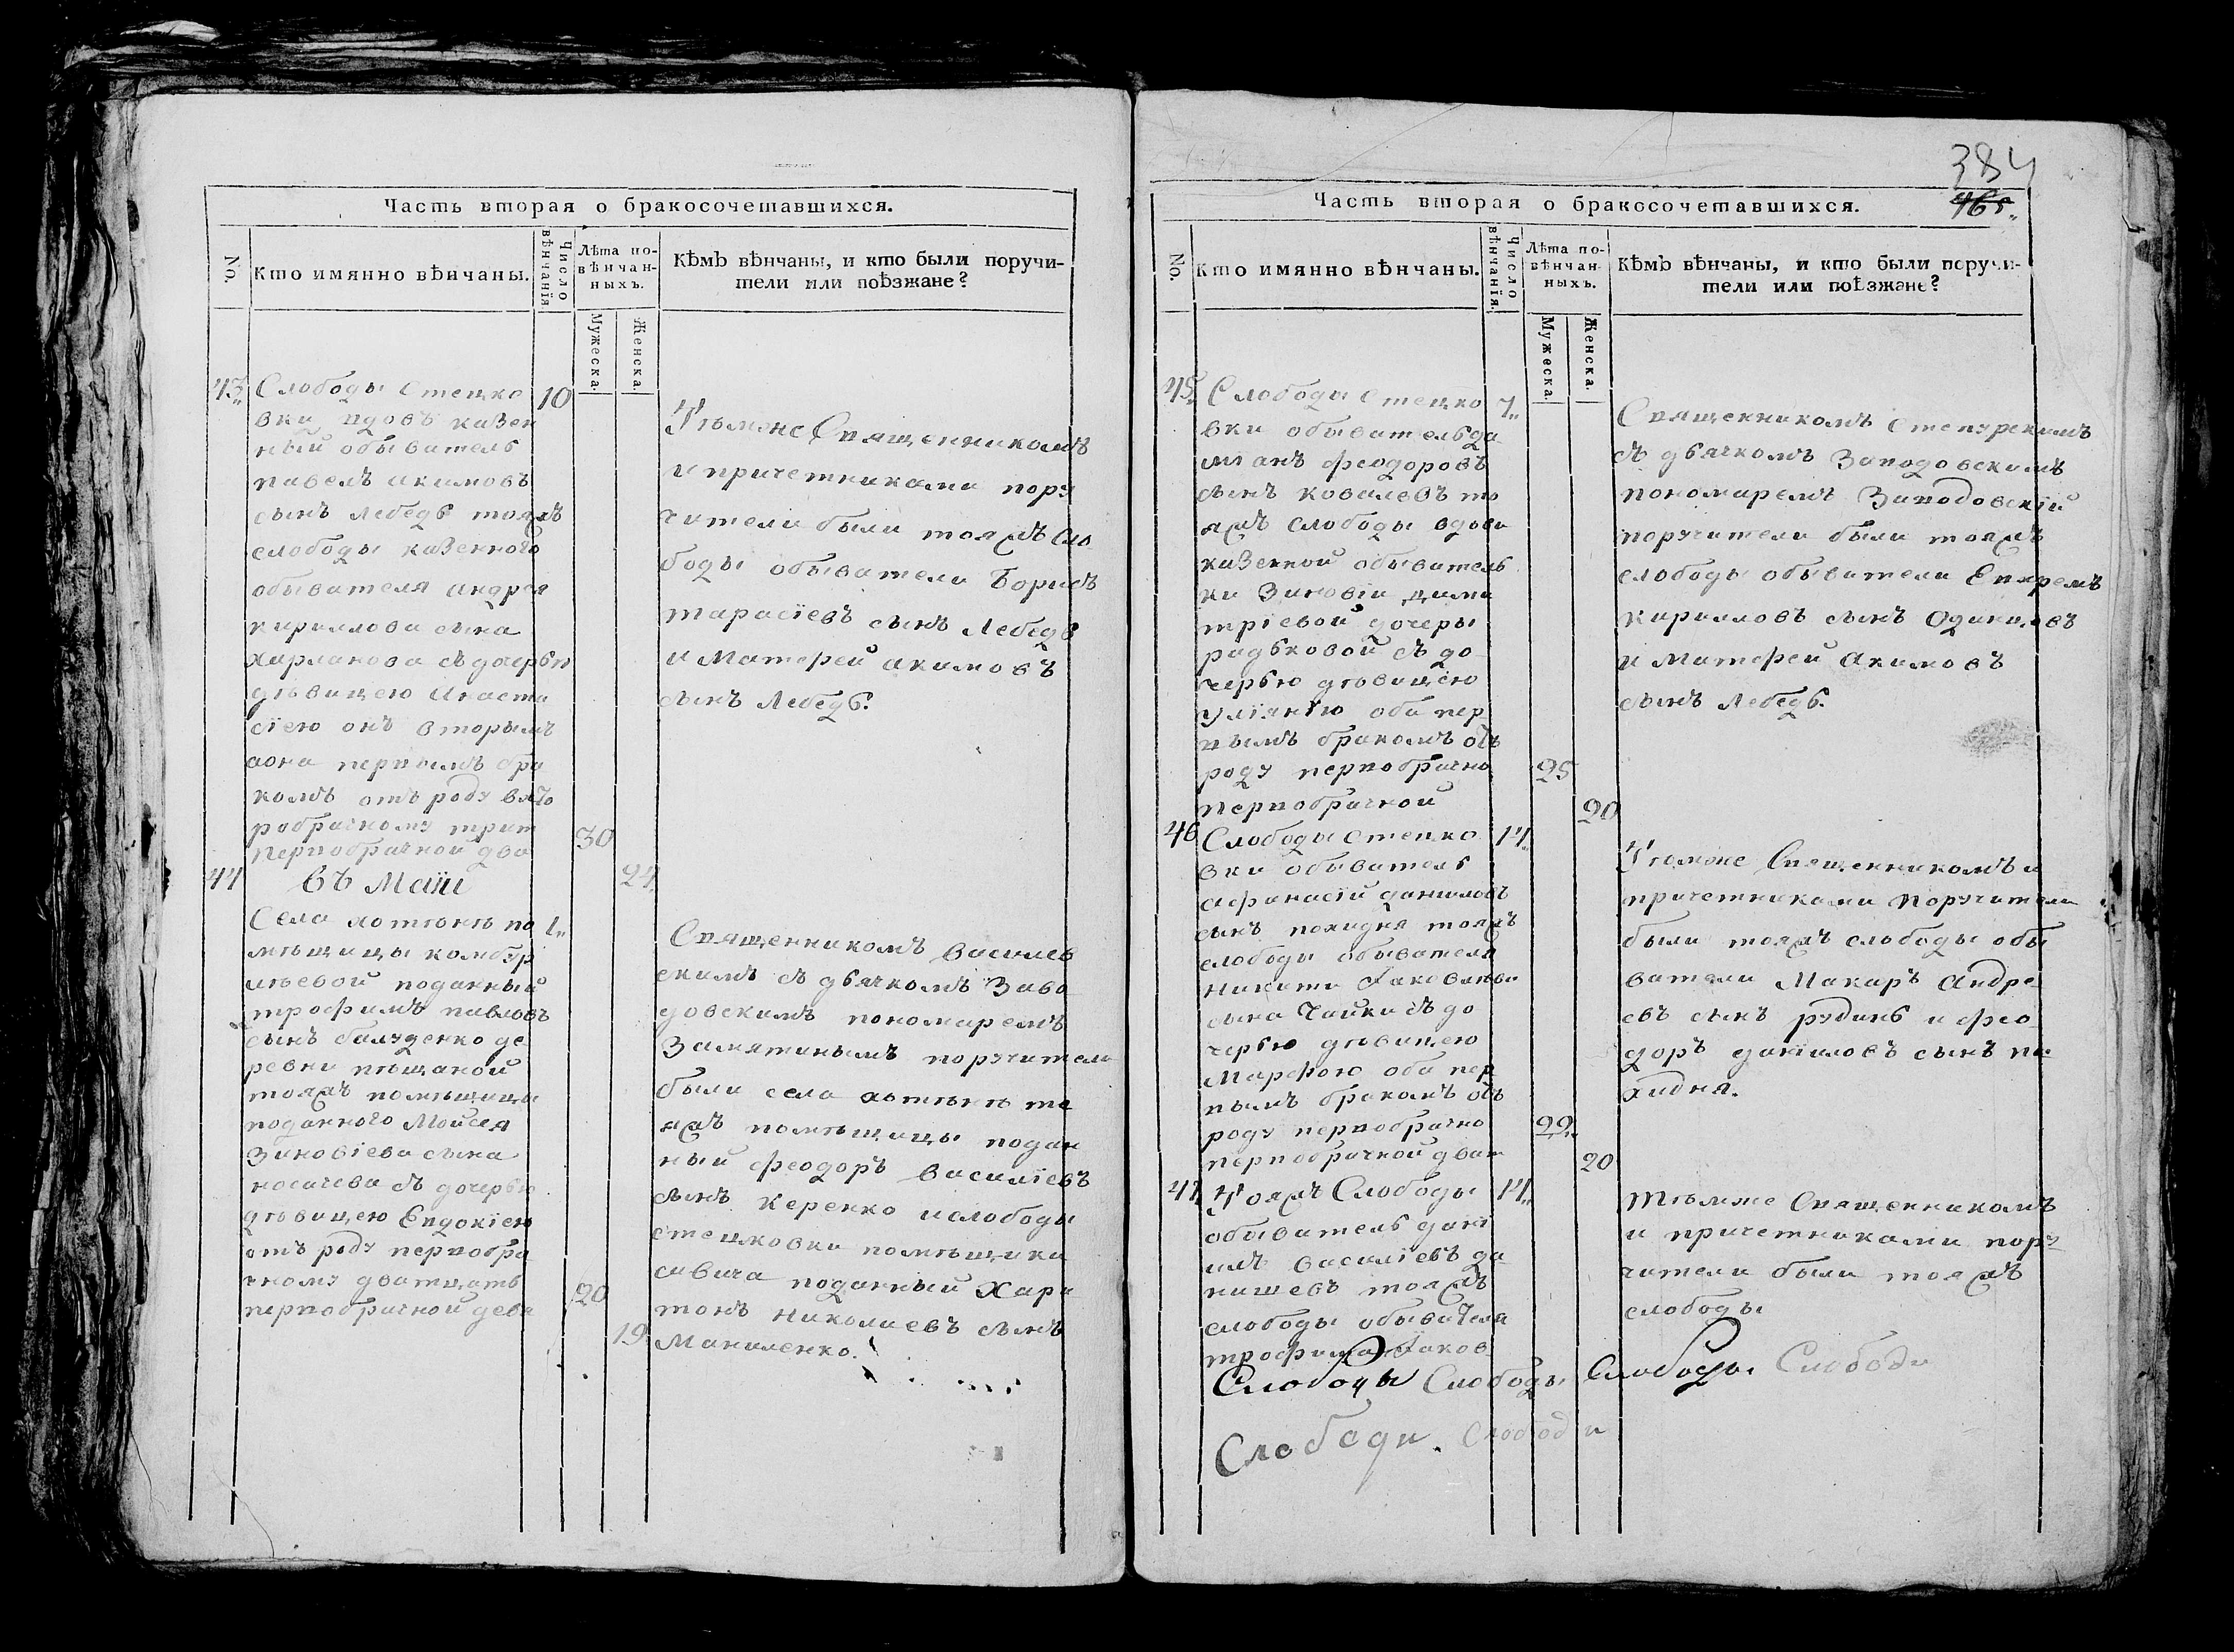 Часть вторая о бракосочетавшихся.
No.
Кто имянно вѣнчаны.
Число вѣнчанїя
Лѣта по-
вѣнчан-
ныхъ.
Мужеска.
Женска.
Кѣмъ вѣнчаны, и кто были поручи-
тели или поѣзжане?
43
Слободы стецко
вки вдовъ казен
ный обыватель
павелъ акимовъ
сынъ лебедь тояжъ
слободы казенного
обывателя андрея
кирилова сына
харланова съ дочерью
дѣвицею Анаста
сїею онъ вторымъ
аона первымъ бра
комъ отъ роду вто
робрачному трит
первобрачной два
10
30
24
Тѣмже Священникомъ
и причетниками пору
чители были тояжъ сло
боды обыватели Борисъ
тарасїевъ сынъ Лебедь
и Матфей акимовъ
сынъ Лебедь.
44
въ Маїи
Села хотѣнѣ по
мѣщицы комбур
лѣевой поданный
трофимъ павловъ
сынъ балуденко де
ревни пѣщаной
тояжъ помѣщицы
поданного Мойсея
Зиновїева сына
носачева съ дочерью
дѣвицею Евдокїею
отъ роду первобра
чному дватцать
первобрачной девя
1
20
19
Священникомъ василев
скимъ съ дьячкомъ Заво
довскимъ пономаремъ
Замятинымъ поручители
были села хотѣнѣ то
яжъ помѣщицы подан
ный феодоръ василїевъ
сынъ керенко ислободы
стецковки помѣщика
савича поданный Хари
тонъ николаевъ сынъ
Маниленко.
384
465
Часть вторая о бракосочетавшихся.
No.
Кто имянно вѣнчаны.
Число вѣнчанїя.
Лѣта по-
вѣнчан-
ныхъ.
Мужеска.
Женска.
Кѣмъ вѣнчаны, и кто были поручи-
тели или поѣзжане?
45
Слободы стецко
вки обыватель да
мїанъ феодоровъ
сынъ ковалевъ то
яжъ слободы вдовы
казенной обыватель
ки Зиновїи дими
трїевой дочеры
радьковой съ до
черью дѣвицею
улїянїю оба пер
вымъ бракомъ отъ
роду первобрачно
первобрачной
7
25
20
Священникомъ степурскимъ
съ дьячкомъ Заводовскимъ
пономаремъ Заводовскїй
поручители были тояжъ
слободы обыватели Ефремъ
кириловъ сынъ Одинцовъ
и Матфей Акимовъ
сынъ Лебедь.
46
Слободы стецко
вки обыватель
афанасїй даниловъ
сынъ похидня тояжъ
слободы обывателя
никиты Їаковлева
сына Чайки съ до
черью дѣвицею
Марфою оба пер
вымъ бракомъ отъ
роду первобрачно
первобрачной дват
14
22
20
Тѣмже Священникомъ и
причетниками поручители
были тояжъ слободы обы
ватели Макаръ Андре
евъ сынъ рудинь и фео
доръ даниловъ сынъ по
хидня.
47
Тояжъ Слободы
обыватель данї
илъ василїевъ да
нишевъ тояжъ
слободы обывателя
трофима Їаков
14
тѣмже Священникомъ
и причетниками пору
чители были тояжъ
слободы
Слободы Слободы Слободы Слободы
Слободи. Слободи